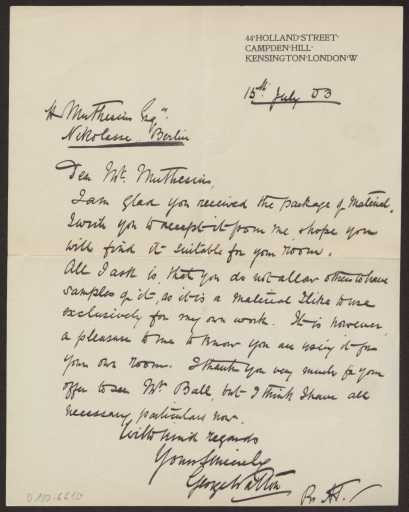 44·HOLLAND·STREET·
CAMPDEN·HILL·
KENSINGTON·LONDON·W
15th July 03
H Muthesius Esqr.
Nikolasse Berlin
Dear Mr. Muthesius,
I am glad you received the package of Material.
I wish you to accept it from me & hope you
will find it suitable for your room.
All I ask is, that you do not allow others to have
samples of it, as it is a material I like to use
exclusively for my own work. It is however
a pleasure to me to know you are using it for
your own room. I thank you very much for your
offer to see Mr. Ball, but I think I have all
necessary particulars now.
With kind regards
Yours Sincerely
George Walton